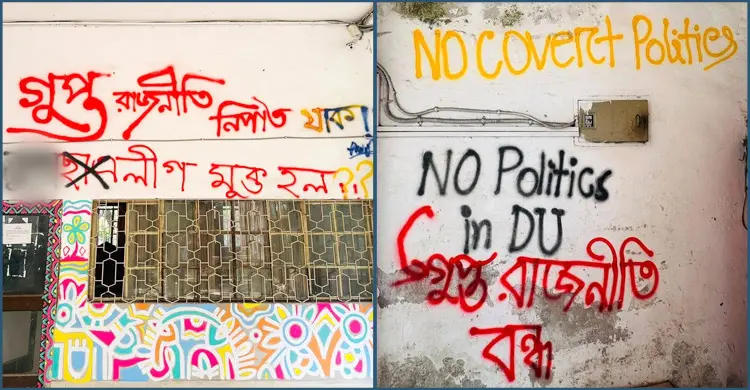 গুপ্ত রাজনীতি নিপাত যাক!
ছাত্রলীগ মুক্ত হল??
NO COVERT Politics
NO Politics
in DU
গুপ্ত রাজনীতি
বন্ধ